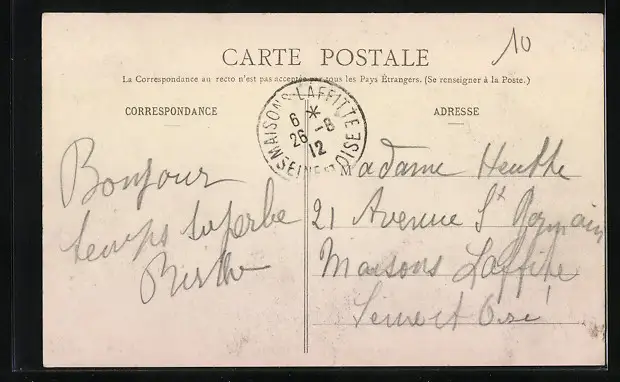 10
CARTE POSTALE
La Correspondance au recto n'est pas acceptée par tous les Pays Étrangers. (Se renseigner à la Poste.)
CORRESPONDANCE
ADRESSE
MAISONS-LAFFITTE
6 *
26 -8
12
SEINE ET OISE
Bonjour
temps superbe
Berthe
Madame
21 Avenue St Germain
Maisons Laffitte
Seine et Oise